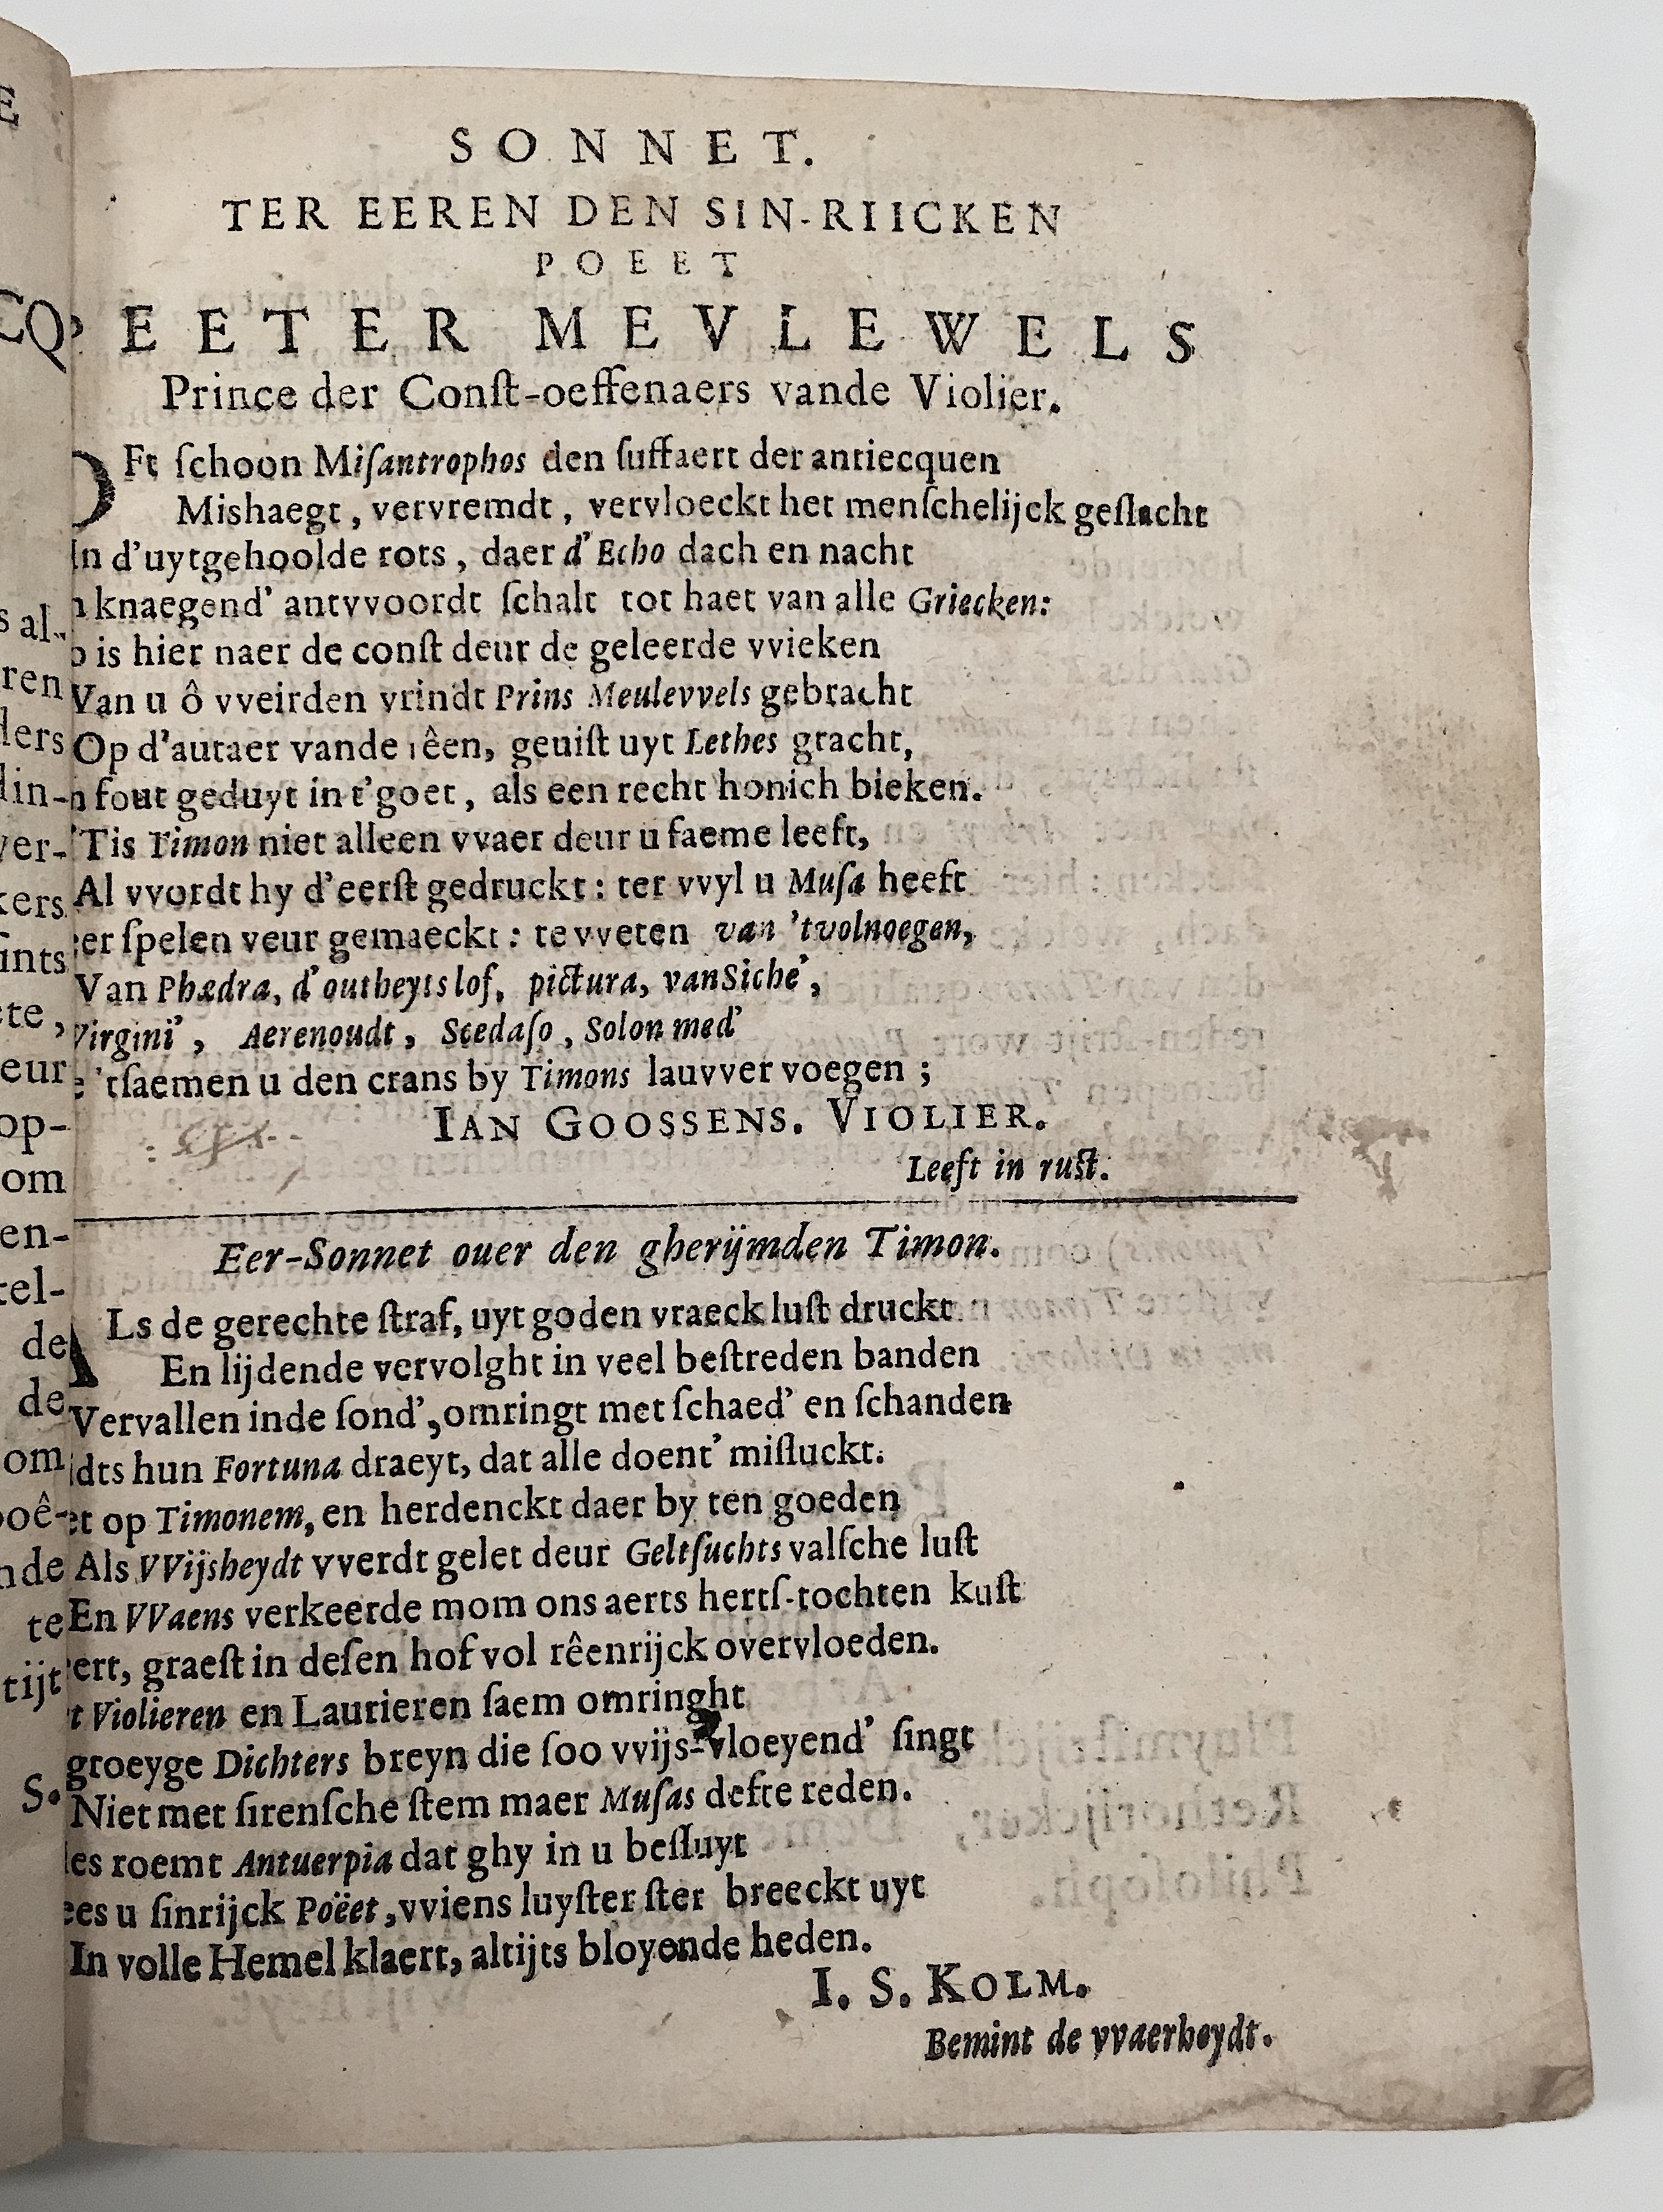 SONNET.
TER EEREN DEN SIN-RIICKEN
POEET
PEETER MEVLEWELS
Prince der Conſt-oeffenaers vande Violier.
OFt ſchoon Miſantrophos den ſuffaert der antiecquen
Mishaegt, vervremdt, vervloeckt het menſchelijck geſlacht
In d'uytgehoolde rots, daer d'Echo dach en nacht
knaegend' antvvoordt ſchalt tot haet van alle Griecken:
is hier naer de conſt deur de geleerde vvieken
Van u ô vveirden vrindt Prins Meulevvels gebracht
Op d'autaer vande rêen, geuiſt uyt Lethes gracht,
fout geduyt in t'goet, als een recht honich bieken.
'Tis Timon niet alleen vvaer deur u faeme leeft,
Al vvordt hy d'eerſt gedruckt: ter vvyl u Muſa heeft
ſpelen veur gemaeckt: te vveten van 'tvolnoegen,
Van Phædra, d'outheyts lof, pictura, van Siche',
Virgini', Aerenoudt, Scedaſo, Solon med'
'tſaemen u den crans by Timons lauvver voegen;
IAN GOOSSENS. VIOLIER.
Leeft in ruſt.
Eer-Sonnet ouer den gherijmden Timon.
ALs de gerechte ſtraf, uyt goden vraeck luſt druckt
En lijdende vervolght in veel beſtreden banden
Vervallen inde ſond', omringt met ſchaed' en ſchanden
hun Fortuna draeyt, dat alle doent' miſluckt.
op Timonem, en herdenckt daer by ten goeden
Als VVijsheydt vverdt gelet deur Geltſuchts valſche luſt
En VVaens verkeerde mom ons aerts hertſ-tochten kuſt
graeſt in deſen hof vol rêenrijck overvloeden.
Violieren en Laurieren ſaem omringht
groeyge Dichters breyn die ſoo vvijs-vloeyend' ſingt
Niet met ſirenſche ſtem maer Muſas defte reden.
roemt Antuerpia dat ghy in u beſluyt
u ſinrijck Poëet, vviens luyſter ſter breeckt uyt
In volle Hemel klaert, altijts bloyende heden.
I. S. KOLM.
Bemint de vvaerheydt.